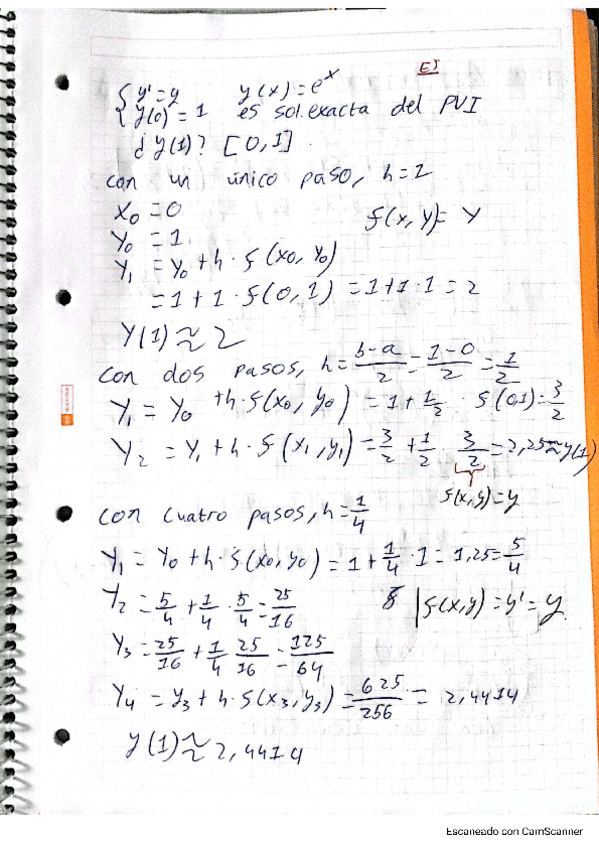 EJ
{ y' = y    y(x) = e^x
{ y(0) = 1   es sol. exacta del PVI
¿ y(1)? [0,1].
con un único paso, h=1
x₀ = 0    f(x, y) = y
y₀ = 1
y₁ = y₀ + h · f(x₀, y₀)
= 1 + 1 · f(0, 1) = 1 + 1 · 1 = 2
y(1) ≈ 2
con dos pasos, h = (b-a)/2 = (1-0)/2 = 1/2
y₁ = y₀ + h · f(x₀, y₀) = 1 + 1/2 · f(0,1) = 3/2
y₂ = y₁ + h · f(x₁, y₁) = 3/2 + 1/2 · 3/2 = 2,25 ≈ y(1)
f(x,y) = y
con cuatro pasos, h = 1/4
y₁ = y₀ + h · f(x₀, y₀) = 1 + 1/4 · 1 = 1,25 = 5/4
y₂ = 5/4 + 1/4 · 5/4 = 25/16    | f(x,y) = y' = y
y₃ = 25/16 + 1/4 25/16 = 125/64
y₄ = y₃ + h · f(x₃, y₃) = 625/256 = 2,4414
y(1) ≈ 2,4414
Escaneado con CamScanner